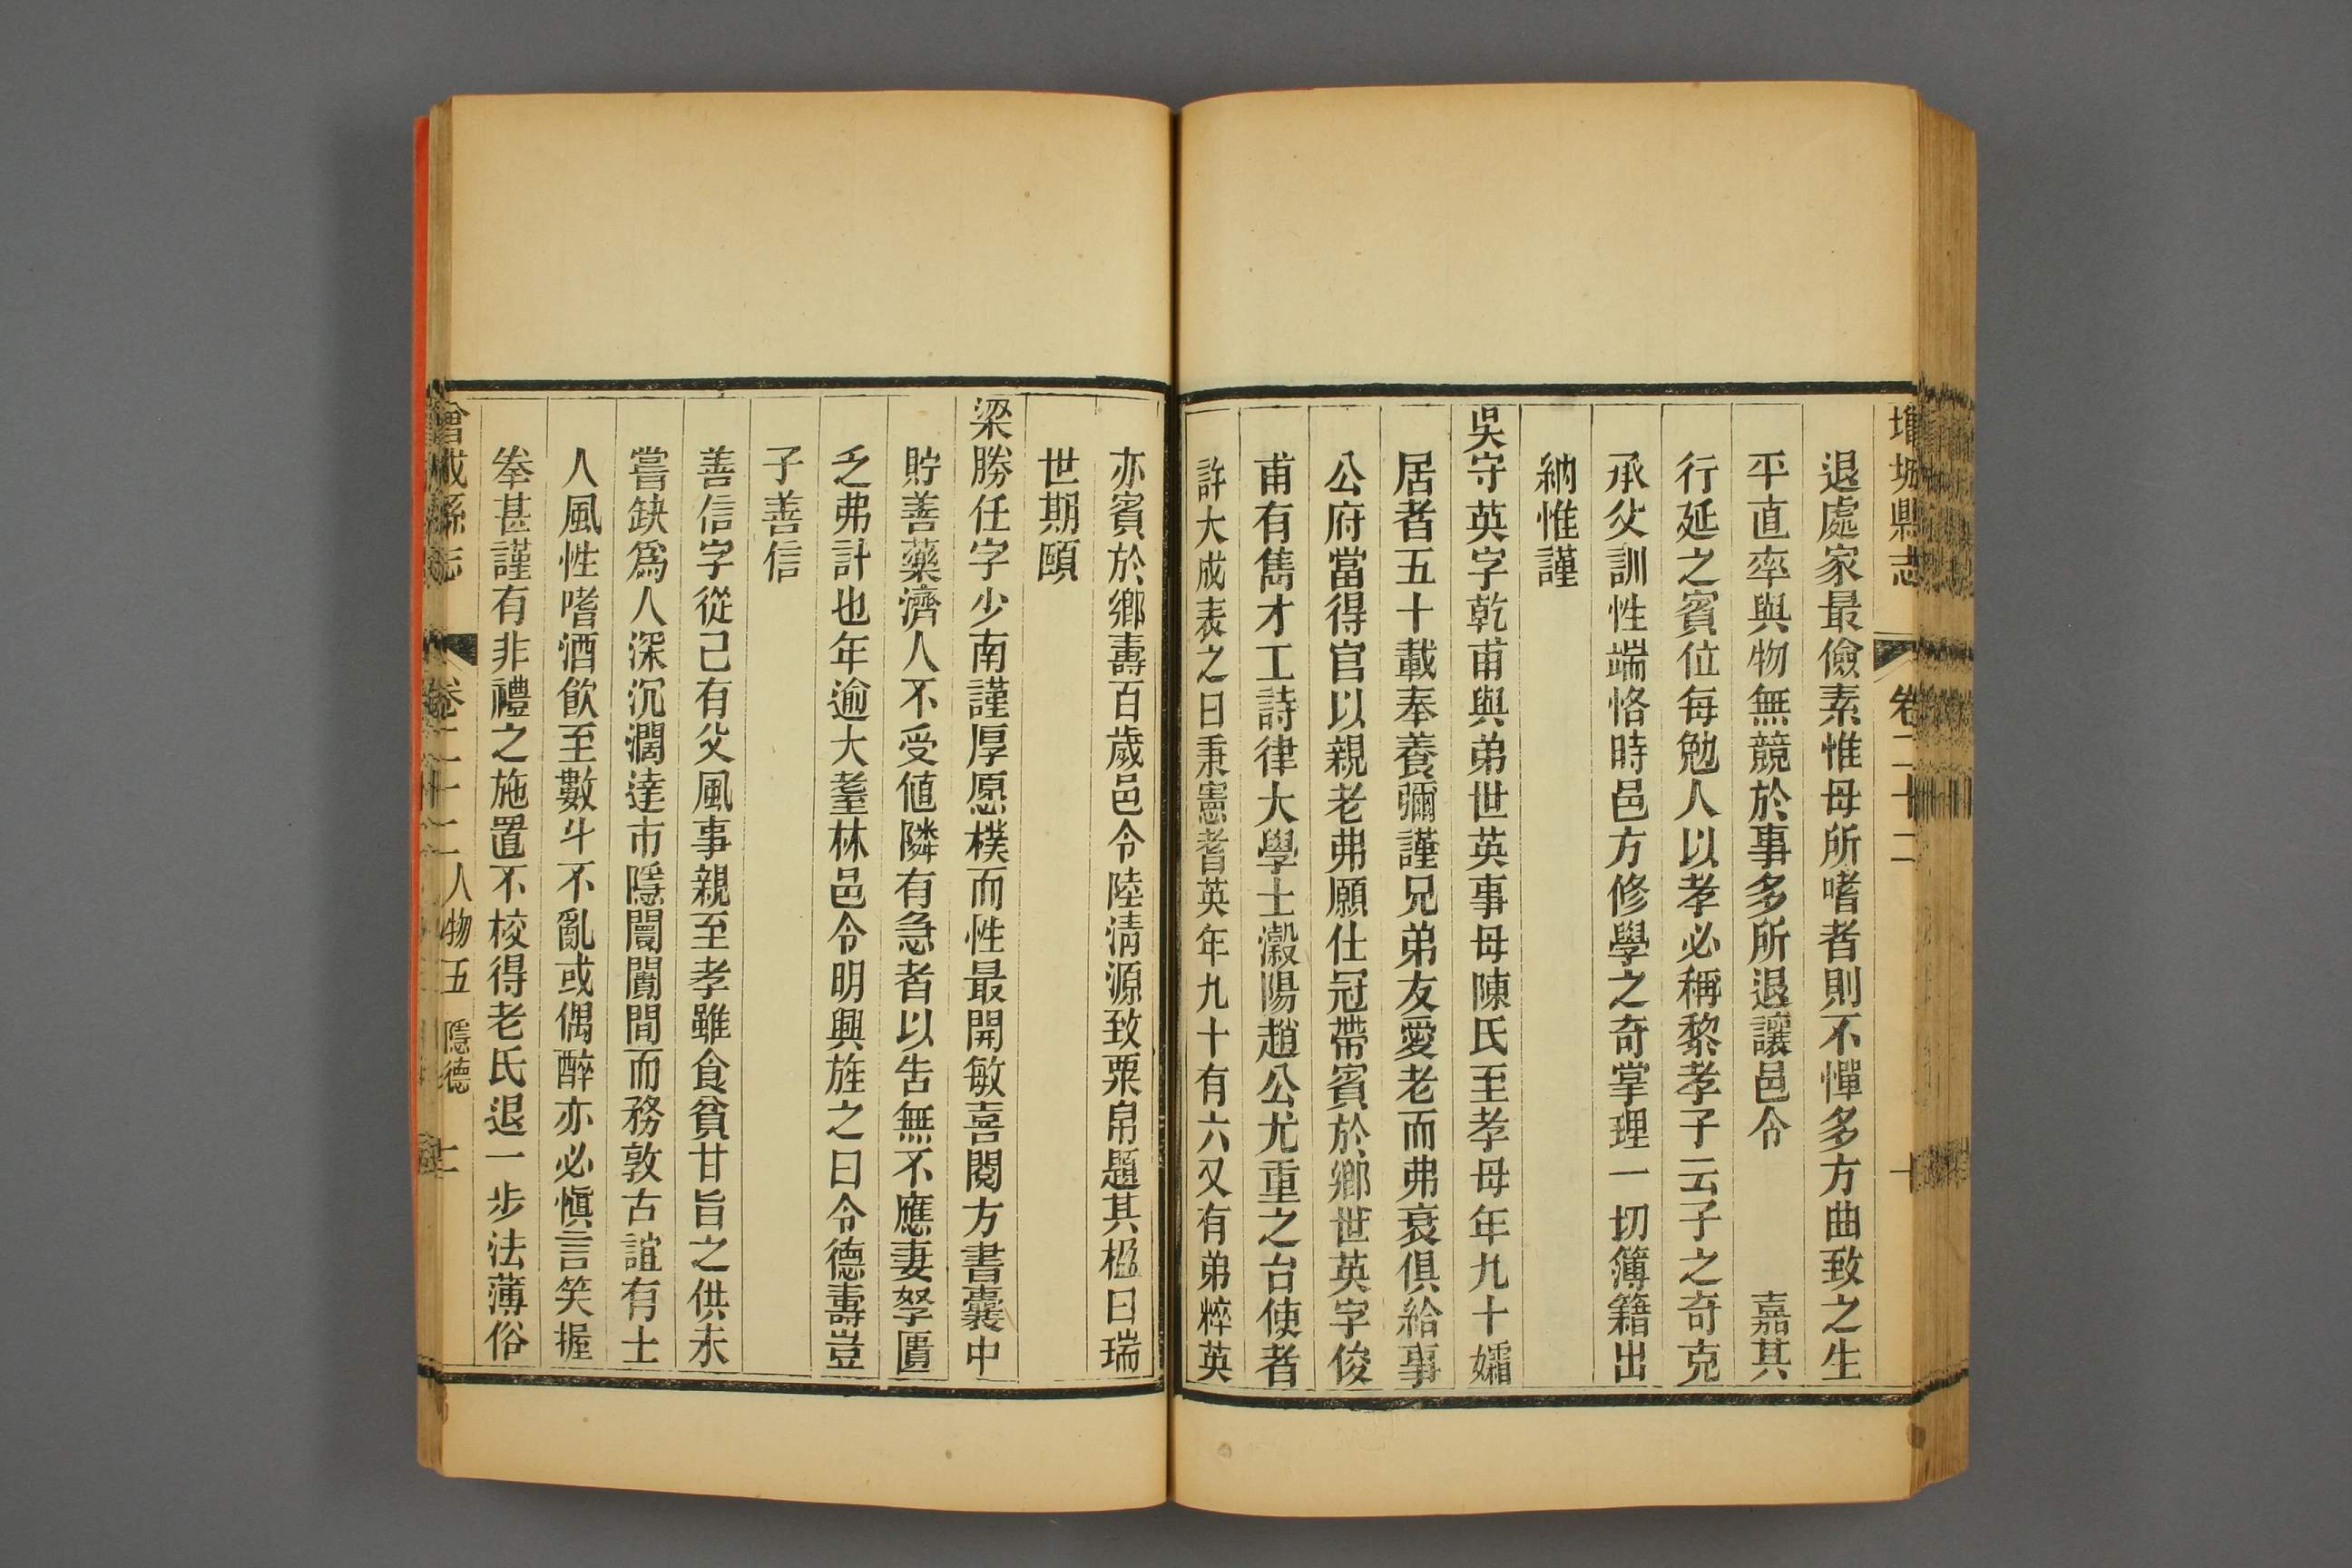 增城縣志 卷二十二 十
退處家最儉素惟母所嗜者則不憚多方曲致之生
平直率與物無競於事多所退讓邑令 嘉其
行延之賓位每勉人以孝必稱黎孝子云子之奇克
承父訓性端恪時邑方修學之奇掌理一切簿籍出
納惟謹
吳守英字乾甫與弟世英事母陳氏至孝母年九十孀
居者五十載奉養彌謹兄弟友愛老而弗衰俱給事
公府當得官以親老弗願仕冠帶賓於鄉世英字俊
甫有雋才工詩律大學士瀫陽趙公尤重之台使者
許大成表之曰秉憲耆英年九十有六又有弟粹英
亦賓於鄉壽百歲邑令陸清源致粟帛題其楹曰瑞
世期頤
梁勝任字少南謹厚愿樸而性最開敏喜閱方書囊中
貯善藥濟人不受値隣有急者以告無不應妻孥匱
乏弗計也年逾大耋林邑令明興旌之曰令德壽豈
子善信
善信字從己有父風事親至孝雖食貧甘旨之供未
嘗缺爲人深沉濶達市隱闤闠間而務敦古誼有士
人風性嗜酒飮至數斗不亂或偶醉亦必愼言笑握
拳甚謹有非禮之施置不校得老氏退一步法薄俗
增城縣志 卷二十二 人物五 隱德